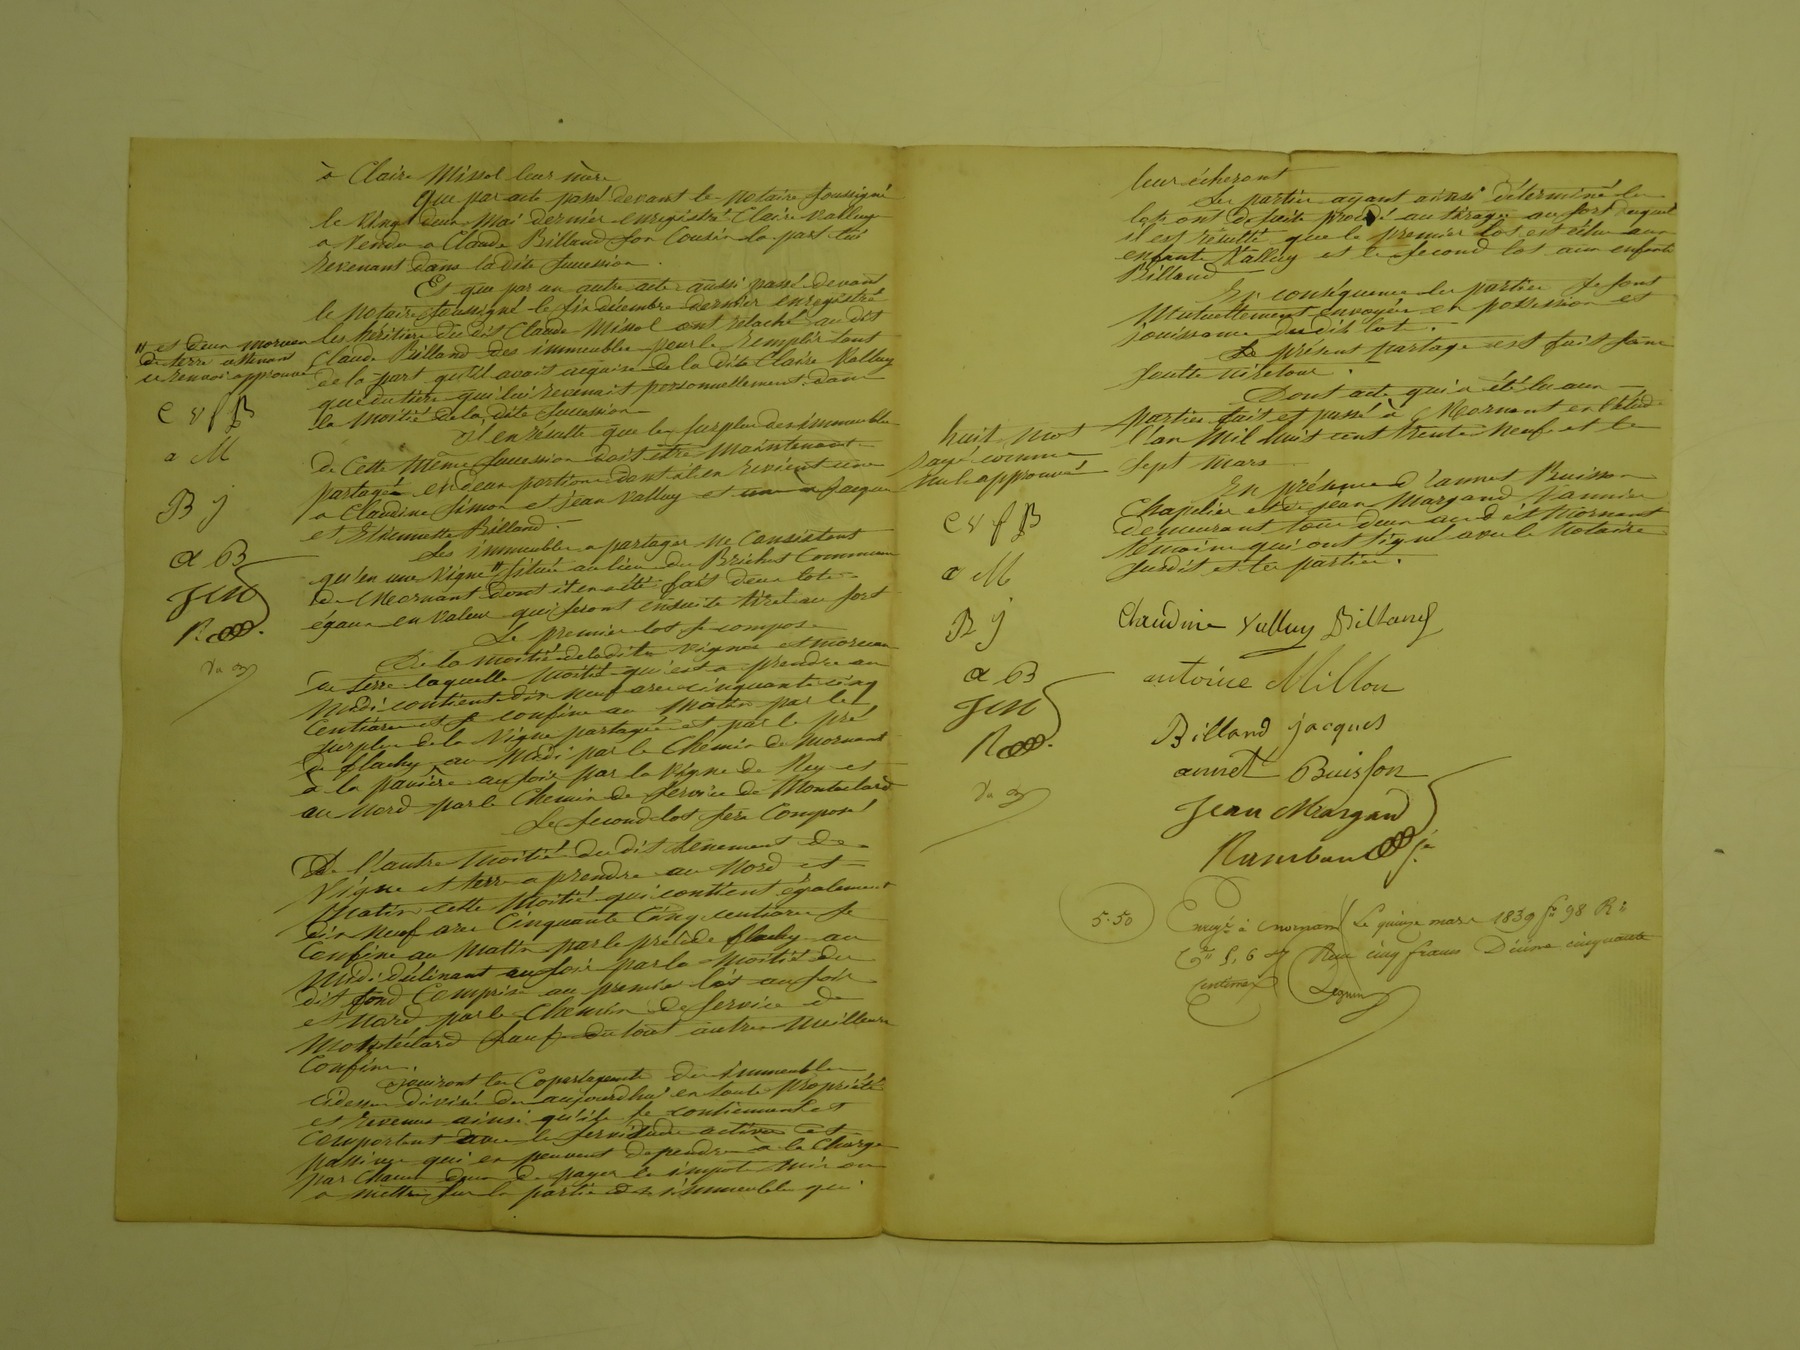 à Claire Missol leur mère
Que par acte passé devant le notaire soussigné
le vingt deux Mai dernier enregistré Claire Valluy
a vendu a Claude Billand son Cousin la part lui
revenant dans la dite succession.
Et que par un autre acte aussi passé devant
le notaire soussigné le six décembre dernier enregistré
les héritiers du dit Claude Missol ont relaché au dit
Claude Billand des immeubles pour le remplir tant
de la part qu'il avait acquise de la dite Claire Valluy
que du tiers qui lui revenait personnellement dans
la moitié de la dite succession
Il en résulte que le surplus des immeubles
de cette même succession doit être maintenant
partagé en deux portions dont il en revient une
a Claudine Simon et jean Valluy et une a Jacques
et Etiennette Billand.
Les immeubles a partager ne Consistent
qu'en une vigne # située au lieu du Brichet Commune
de Mornant dont il en a été fait deux lots
égaux en valeur qui seront ensuite tirés au sort
Le premier lot se compose
De la moitié de la dite vigne et morceau
de terre laquelle moitié qui est a prendre au
Midi contient dix neuf ares cinquante cinq
Centiares et se confine au Matin par le
surplus de la vigne partagée et par le pré
de flachy au Midi par le Chemin de Mornant
à la pavière au soir par la vigne de Rey et
au Nord par le Chemin de service de Monteclard
Le second lot sera Composé
De l'autre moitié du dit tenement de
Vigne et terre a prendre au Nord et
Matin cette moitié qui contient également
dix neuf ares Cinquante Cinq centiares se
Confine au Matin par le pré de flachy au
Midi déclinant au soir par la moitié du
dit fond Comprise au premier lot au soir
et Nord par le Chemin de service de
Monteclard sauf du tout autres meilleurs
Confins.
Jouiront les Copartageants des immeubles
cidessus divisés dès aujourdhui en toute propriété
et revenus ainsi qu'ils se contiennent et
Comportent avec les servitudes actives et
passives qui en peuvent dependre à la Charge
par Chacun deux de payer les impots mis ou
a mettre sur la partie des immeubles qui
# et d'un morceau
de terre attenant
ce renvoi approuvé
C v f B
a M
B j
a B
JM
R
leur écheront
Les parties ayant ainsi déterminé les
lots ont de suite procédé au tirage au sort duquel
il est résulté que le premier lot est échu aux
enfants Valluy et le second lot aux enfants
Billand
En conséquence les parties se sont
Mutuellement envoyées en possession et
jouissance dudit lot.
Le présent partage est fait sans
soulte ni retour.
Dont acte qui a été lu aux
parties fait et passé à Mornant en l'étude
l'an Mil huit cent trente neuf et le
sept mars
En présence d'annet Buisson
Chapelier et de jean Margand Vannier
demeurant tous deux au dit Mornant
témoins qui ont signé avec le Notaire
susdit et les parties.
huit mots
rayés comme
nuls approuvés
C v f B
a M
B j
a B
JM
R
Claudine Valluy Billand
antoine Millon
Billand jacques
annet Buisson
Jean Margand
Rambaud
5.50
Enregé à Mornant Le quinze mars 1839 fo 98 Ro
Cen 5, 6 & 7 Reçu cinq francs Décime cinquante
centimes